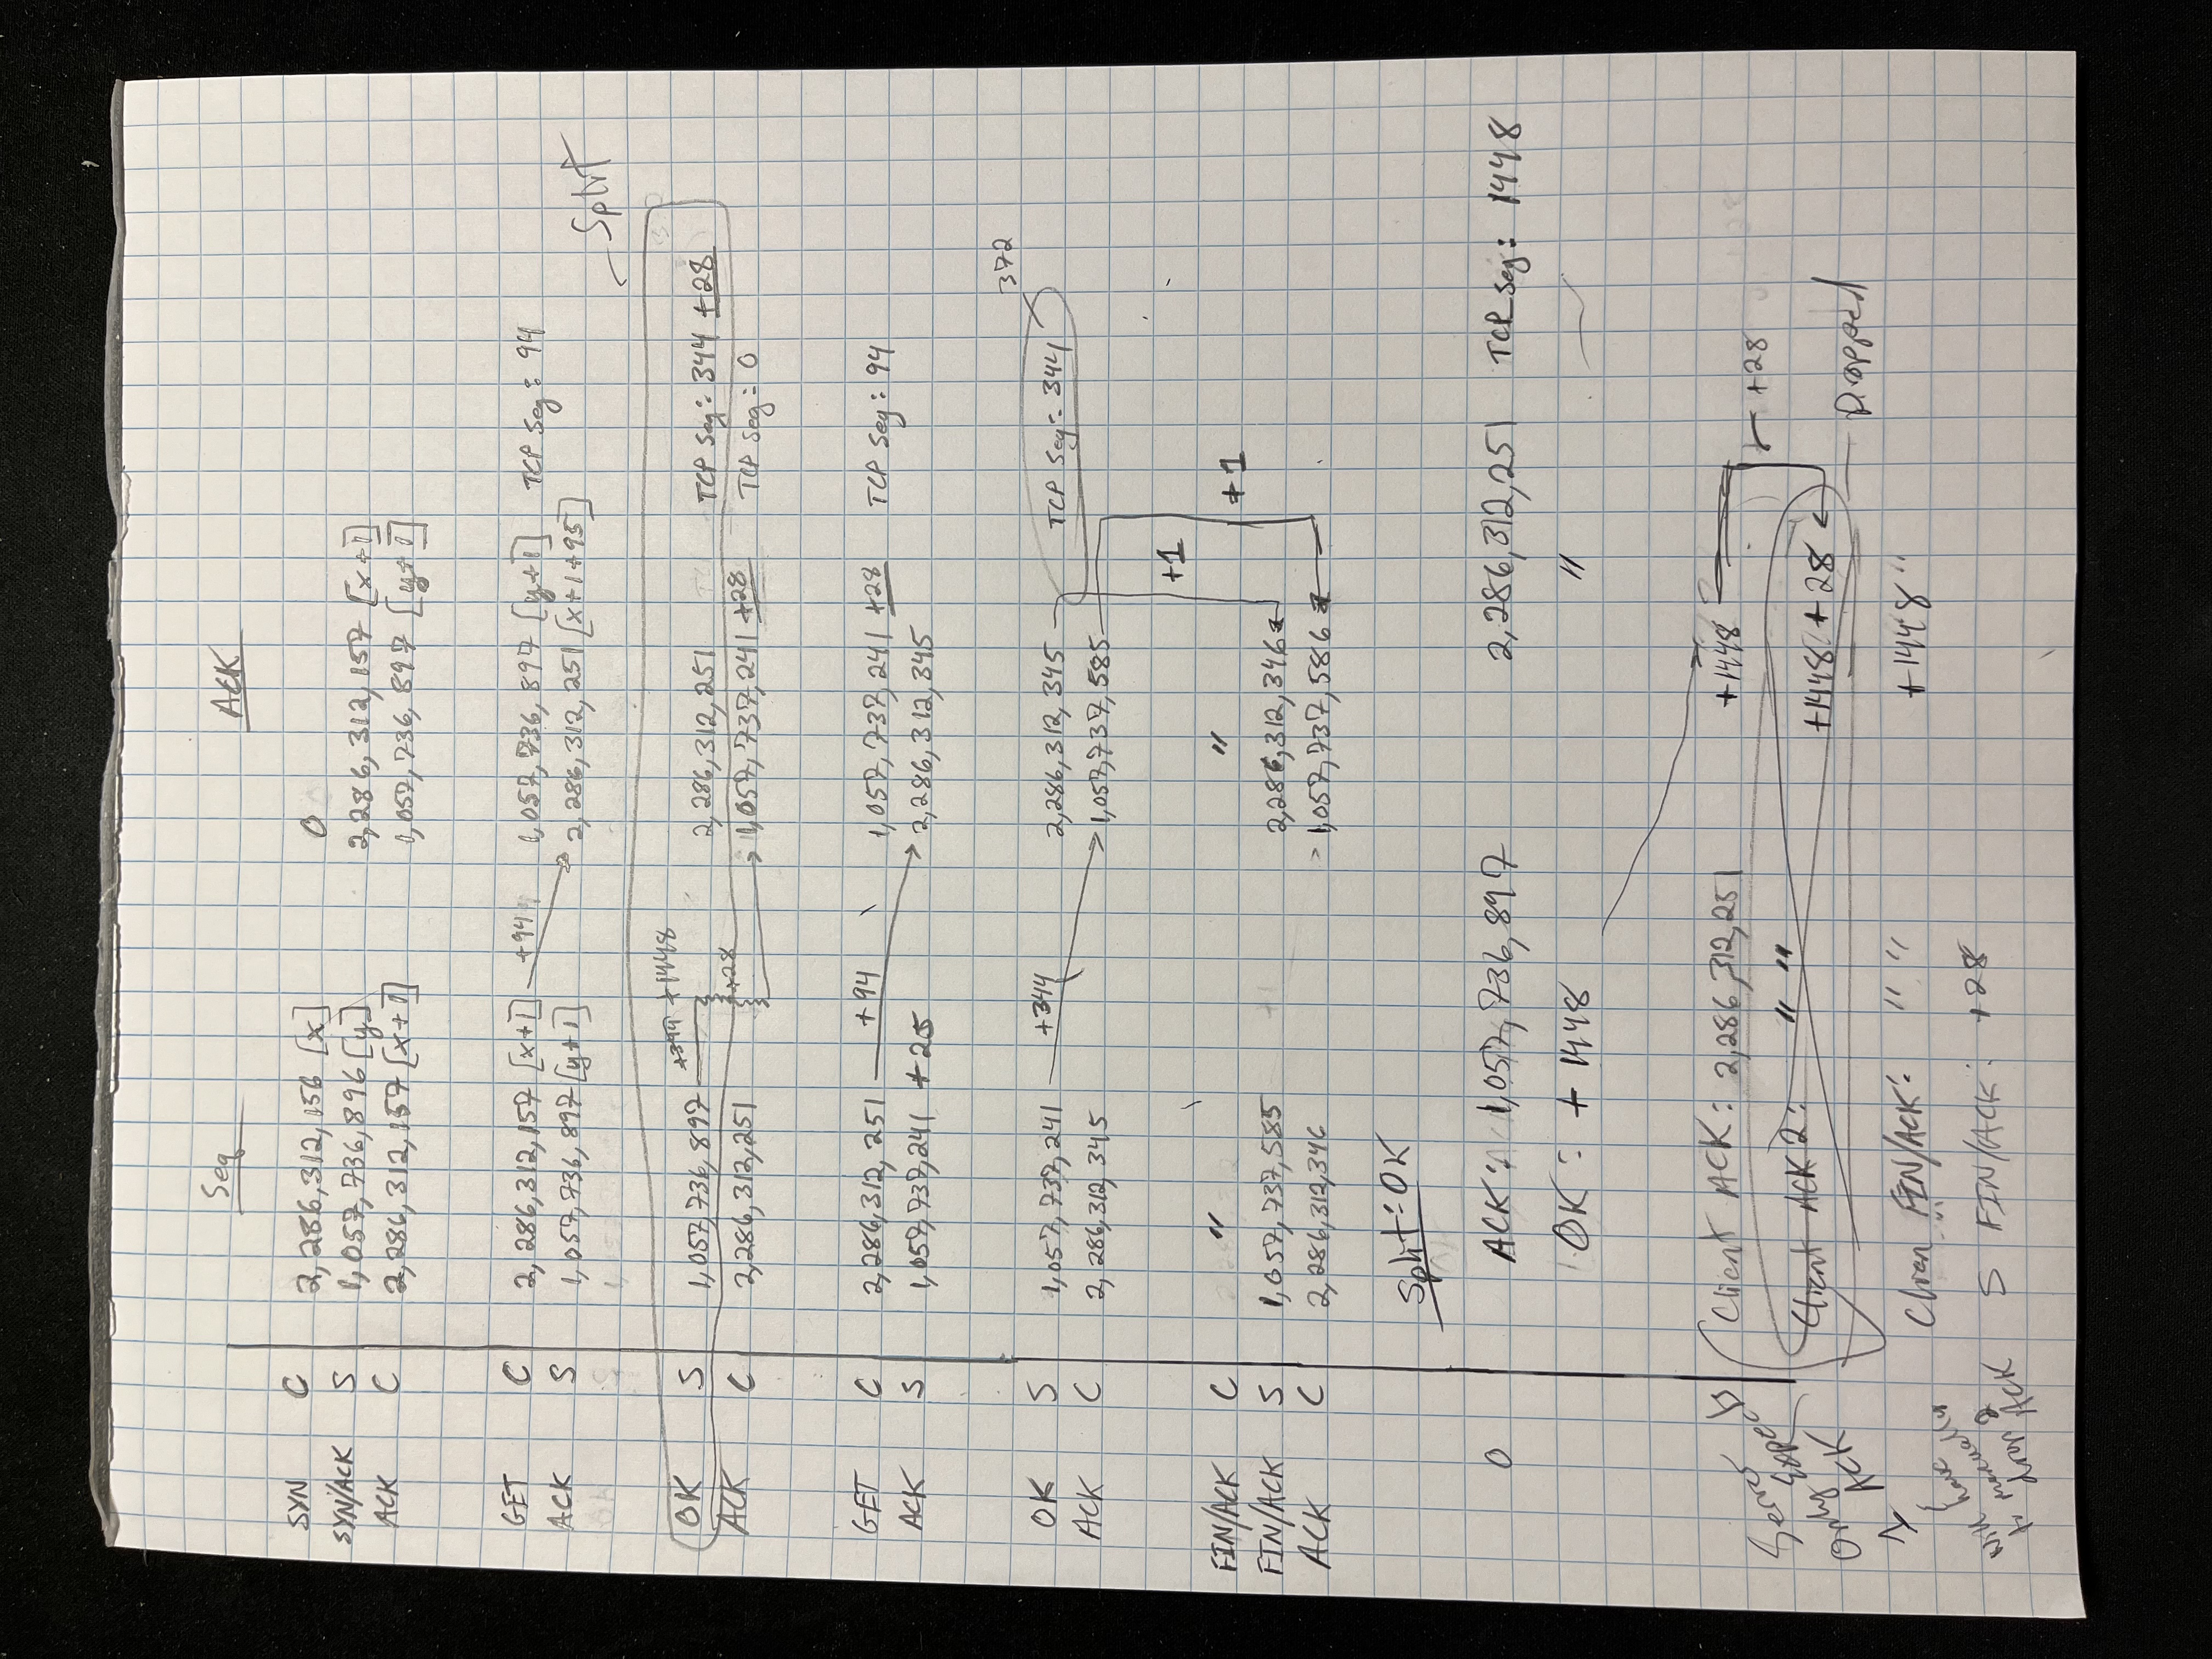 Seq ACK
SYN C 2,286,312,156 [x] 0
SYN/ACK S 1,057,736,896 [y] 2,286,312,157 [x+1]
ACK C 2,286,312,157 [x+1] 1,057,736,897 [y+1]
GET C 2,286,312,157 [x+1] +94 1,057,736,897 [y+1] TCP Seg: 94
ACK S 1,057,736,897 [y+1] 2,286,312,251 [x+1+95]
Split
+344 +1448
OK S 1,057,736,897 2,286,312,251 TCP Seg: 344 +28
+28
ACK C 2,286,312,251 1,057,737,241 +28 TCP Seg: 0
GET C 2,286,312,251 +94 1,057,737,241 +28 TCP Seg: 94
ACK S 1,057,737,241 +28 2,286,312,345
372
OK S 1,057,737,241 +344 2,286,312,345 TCP Seg: 344
ACK C 2,286,312,345 1,057,737,585
+1
FIN/ACK C " " +1
FIN/ACK S 1,057,737,585 2,286,312,346
ACK C 2,286,312,346 1,057,737,586
Split: OK
0 ACK: 1,057,736,897 2,286,312,251 TCP Seg: 1448
OK: +1448 "
Client ACK: 2,286,312,251 +1448
+28
Client ACK 2: " " +1448 + 28
Dropped
Clien FIN/ACK: " " +1448 "
S FIN/ACK: +28
Server
Only Expects
1 ACK
will have
to manually
drop 2
ACK